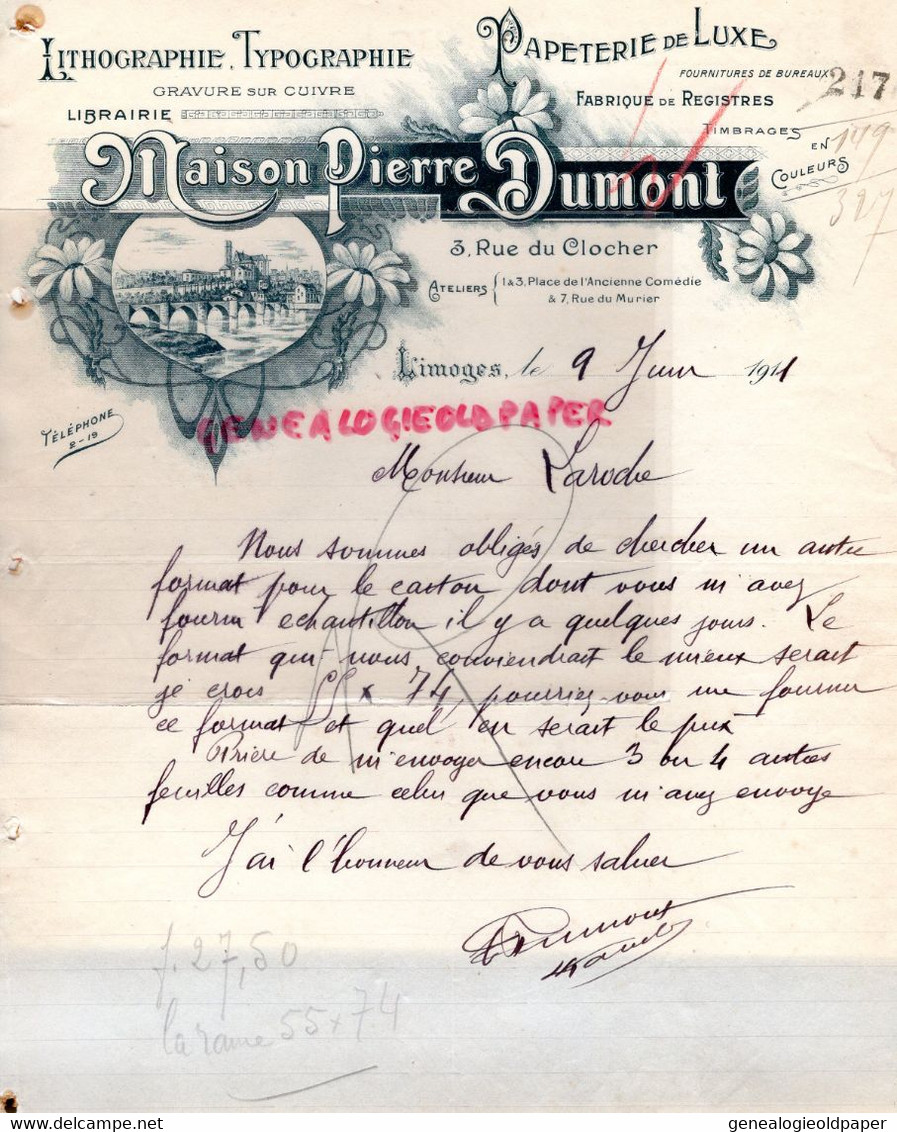 LITHOGRAPHIE, TYPOGRAPHIE
GRAVURE SUR CUIVRE
LIBRAIRIE
PAPETERIE DE LUXE
FOURNITURES DE BUREAUX
FABRIQUE DE REGISTRES
TIMBRAGES
EN
COULEURS
217
149
327
Maison Pierre Dumont
3, RUE DU CLOCHER
ATELIERS { 1 & 3, Place de l'Ancienne Comédie
& 7, Rue du Murier
Limoges, le 9 Juin 1911
TÉLÉPHONE
2-19
GENEALOGIEOLDPAPER
Monsieur Laroche
Nous sommes obligés de chercher un autre
format pour le carton dont vous m'avez
fourni echantillon il y a quelques jours. Le
format qui nous conviendrait le mieux serait
je crois 55 x 74, pourriez-vous me fournir
ce format et quel en serait le prix
Prière de m'envoyer encore 3 ou 4 autres
feuilles comme celui que vous m'avez envoyé
J'ai l'honneur de vous saluer
PDumont
f. 27,50
la rame 55 x 74
delcampe.net
genealogieoldpaper